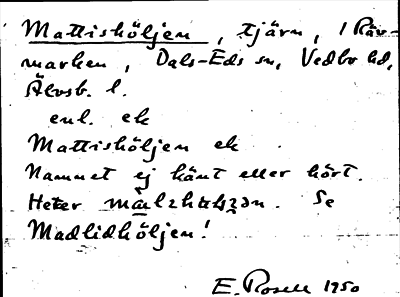 Mattishöljen, tjärn, i Räv-
marken, Dals-Eds sn, Vedbo hd,
Älvsb. l.
enl. ek
Mattishöljen ek
Namnet ej känt eller hört.
Heter Se
Madlidhöljen!
E. Rosell 1950